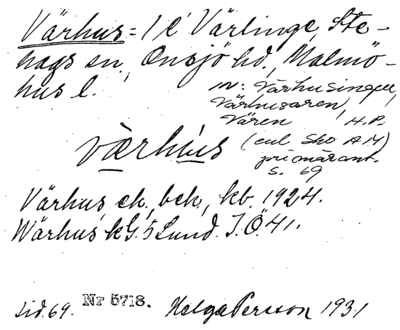 Värhus = 1 i Värlinge, Ste-
hags sn, Onsjö hd, Malmö-
hus l.
m: Värhusingen,
Värhusaren,
Vären H.P.
værhus
(enl. Sko AM)
primäront.
s. 69
Värhus, ek, bek, kb. 1924.
Wärhus kG. 5 Lund. I.Ö 41.
Sid. 69. Nr 5718. Helga Persson 1931